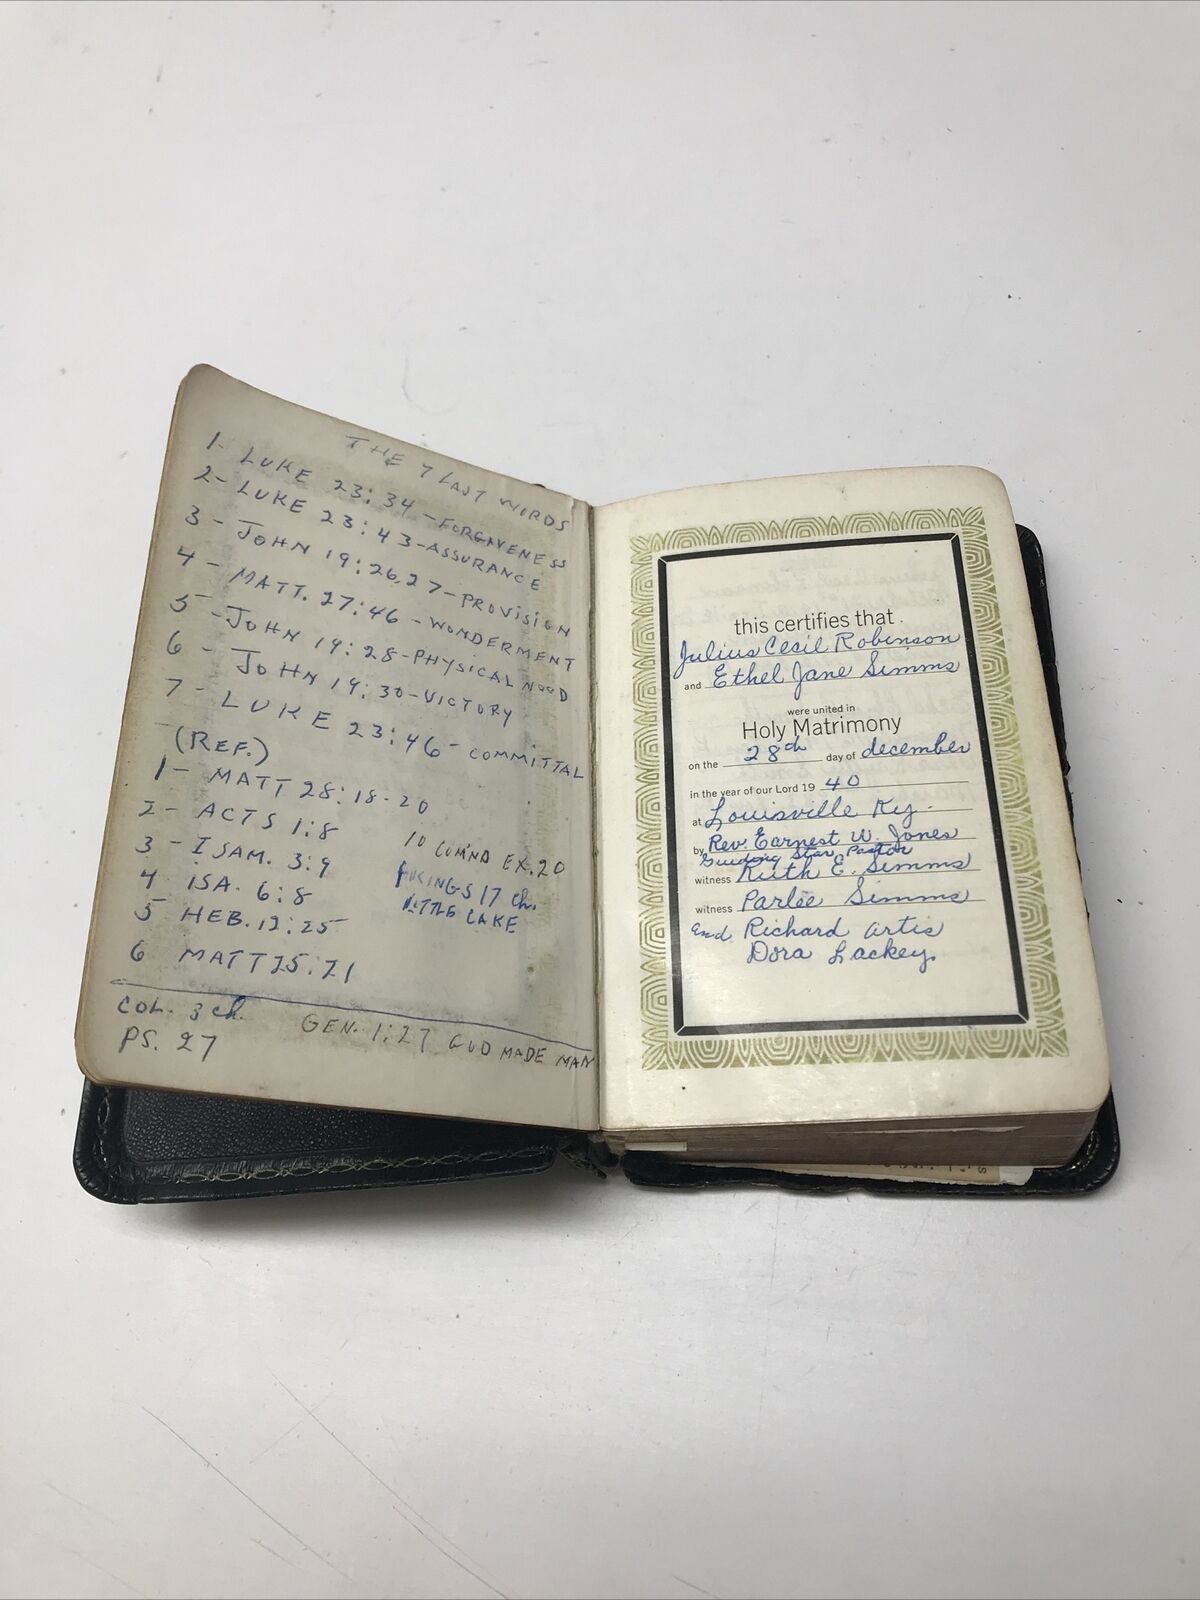 THE 7 LAST WORDS
1- LUKE 23:34 -FORGIVENESS
2- LUKE 23:43-ASSURANCE
3- JOHN 19:26,27-PROVISION
4- MATT. 27:46 -WONDERMENT
5-JOHN 19:28-PHYSICAL NOOD
6- JOHN 19:30-VICTORY
7- LUKE 23:46- COMMITTAL
(REF.)
1- MATT 28:18-20
2- ACTS 1:8
3- I SAM. 3:9
4 ISA. 6:8
5 HEB. 12:25
6 MATT 25:21
10 COM'ND EX.20
KINGS 17 Ch.
LITTLE CAKE
COL. 3 ch.
PS. 27
GEN. 1:27 GOD MADE MAN
this certifies that
Julius Cecil Robinson
and Ethel Jane Simms
were united in
Holy Matrimony
on the 28th day of december
in the year of our Lord 19 40
at Louisville Ky.
by Rev. Earnest W. Jones
Guiding Star, Pastor
witness Ruth E. Simms
witness Parlee Simms
and Richard Artis
Dora Lackey.